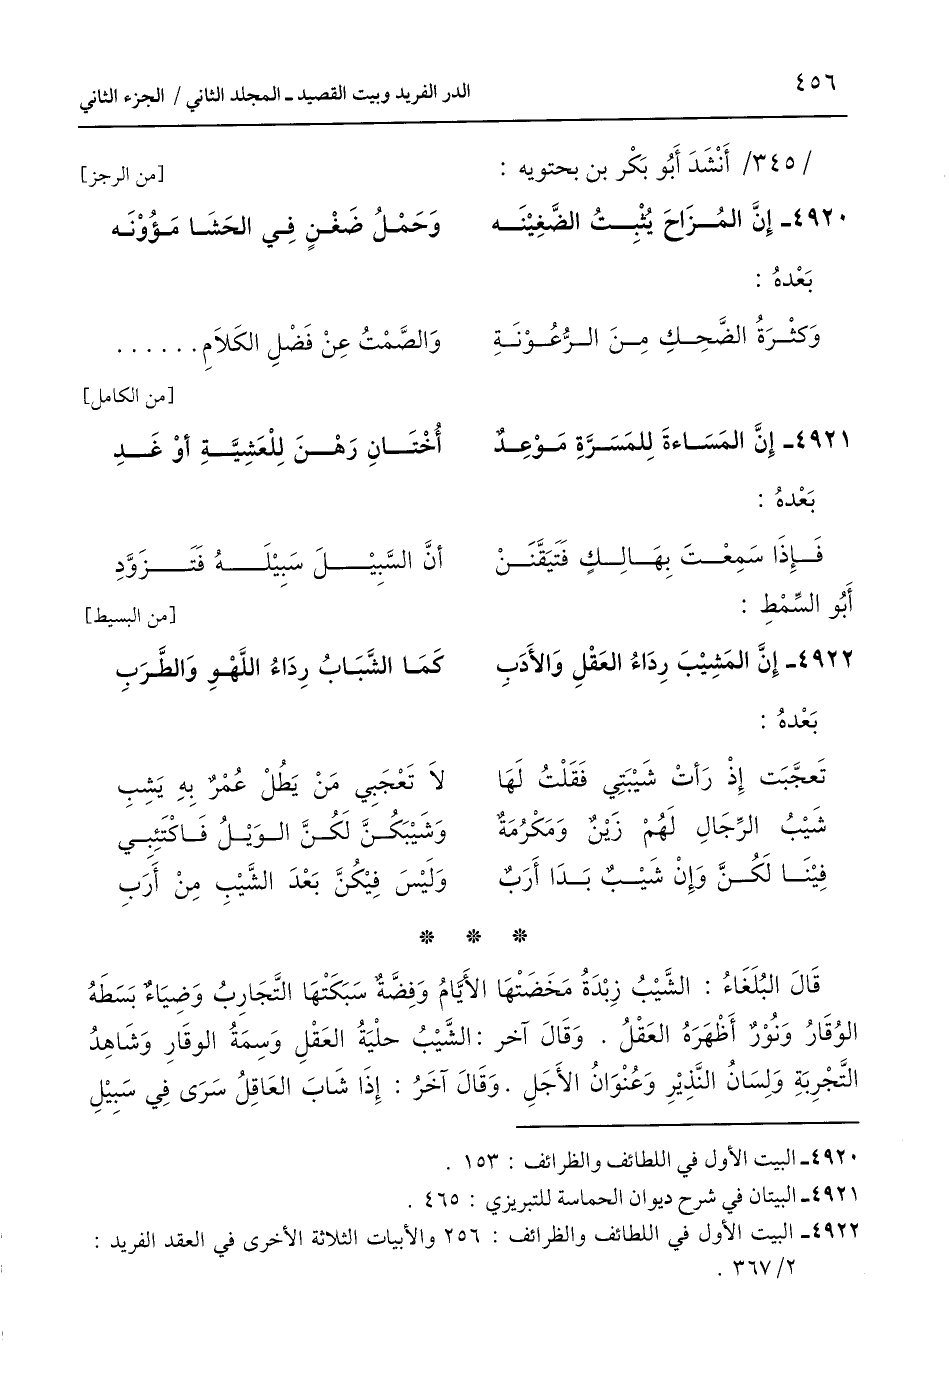 ٤٥٦
الدر الفريد وبيت القصيد ـ المجلد الثاني / الجزء الثاني
/٣٤٥/ أَنْشَدَ أَبُو بَكْر بن بحتويه : [من الرجز]
٤٩٢٠ـ إِنَّ المُزَاحَ يُثْبِتُ الضَّغِيْنَه وَحَمْلُ ضَغْنٍ فِي الحَشَا مَؤُوْنَه
بَعْدهُ :
وَكَثْرَةُ الضَّحِكِ مِنَ الرُّعُوْنَةِ وَالصَّمْتُ عِنْ فَضْلِ الكَلَامِ . . . . . .
[من الكامل]
٤٩٢١ـ إِنَّ المَسَاءةَ لِلمَسَرَّةِ مَوْعِدٌ أُخْتَانِ رَهْنَ لِلْعَشِيَّةِ أوْ غَدِ
بَعْدهُ :
فَإِذَا سَمِعْتَ بِهَالِكٍ فَتَيَقَّنَنْ أنَّ السَّبِيْلَ سَبِيْلَهُ فَتَزَوَّدِ
أَبُو السِّمْطِ : [من البسيط]
٤٩٢٢ـ إِنَّ المَشِيْبَ رِدَاءُ العَقْلِ وَالأَدَبِ كَمَا الشَّبَابُ رِدَاءُ اللَّهْوِ وَالطَّرَبِ
بَعْدهُ :
تَعجَّبَت إِذْ رَأتْ شَيْبَتِي فَقَلْتُ لَهَا لاَ تَعْجَبِي مَنْ يَطُلْ عُمْرٌ بِهِ يَشِبِ
شَيْبُ الرِّجَالِ لَهُمْ زَيْنٌ وَمَكْرُمَةٌ وَشَيْبَكُنَّ لَكُنَّ الوَيْلُ فَاكْتَئِبِي
فِيْنَا لَكُنَّ وَإِنْ شَيْبٌ بَدَا أَرَبٌ وَلَيْسَ فِيْكُنَّ بَعْدَ الشَّيْبِ مِنْ أَرَبِ
* * *
قَالَ البُلَغَاءُ : الشَّيْبُ زِبْدَةُ مَخَضَتْهَا الأَيَّامُ وَفِضَّةٌ سَبَكَتْهَا التَّجَارِبُ وَضِيَاءٌ بَسَطَهُ
الوُقَارُ وَنُوْرٌ أَظْهَرَهُ العَقْلُ . وَقَالَ آخر : الشَّيْبُ حلْيَةُ العَقْلِ وَسِمَةُ الوقَارِ وَشَاهِدُ
التَّجْرِبَةِ وَلِسَانُ النَّذِيْرِ وَعُنْوَانُ الأَجَلِ . وَقَالَ آخَرُ : إِذَا شَابَ العَاقِلُ سَرَى فِي سَبِيْلِ
٤٩٢٠ـ البيت الأول في اللطائف والظرائف : ١٥٣ .
٤٩٢١ـ البيتان في شرح ديوان الحماسة للتبريزي : ٤٦٥ .
٤٩٢٢ـ البيت الأول في اللطائف والظرائف : ٢٥٦ والأبيات الثلاثة الأخرى في العقد الفريد :
٢/ ٣٦٧ .